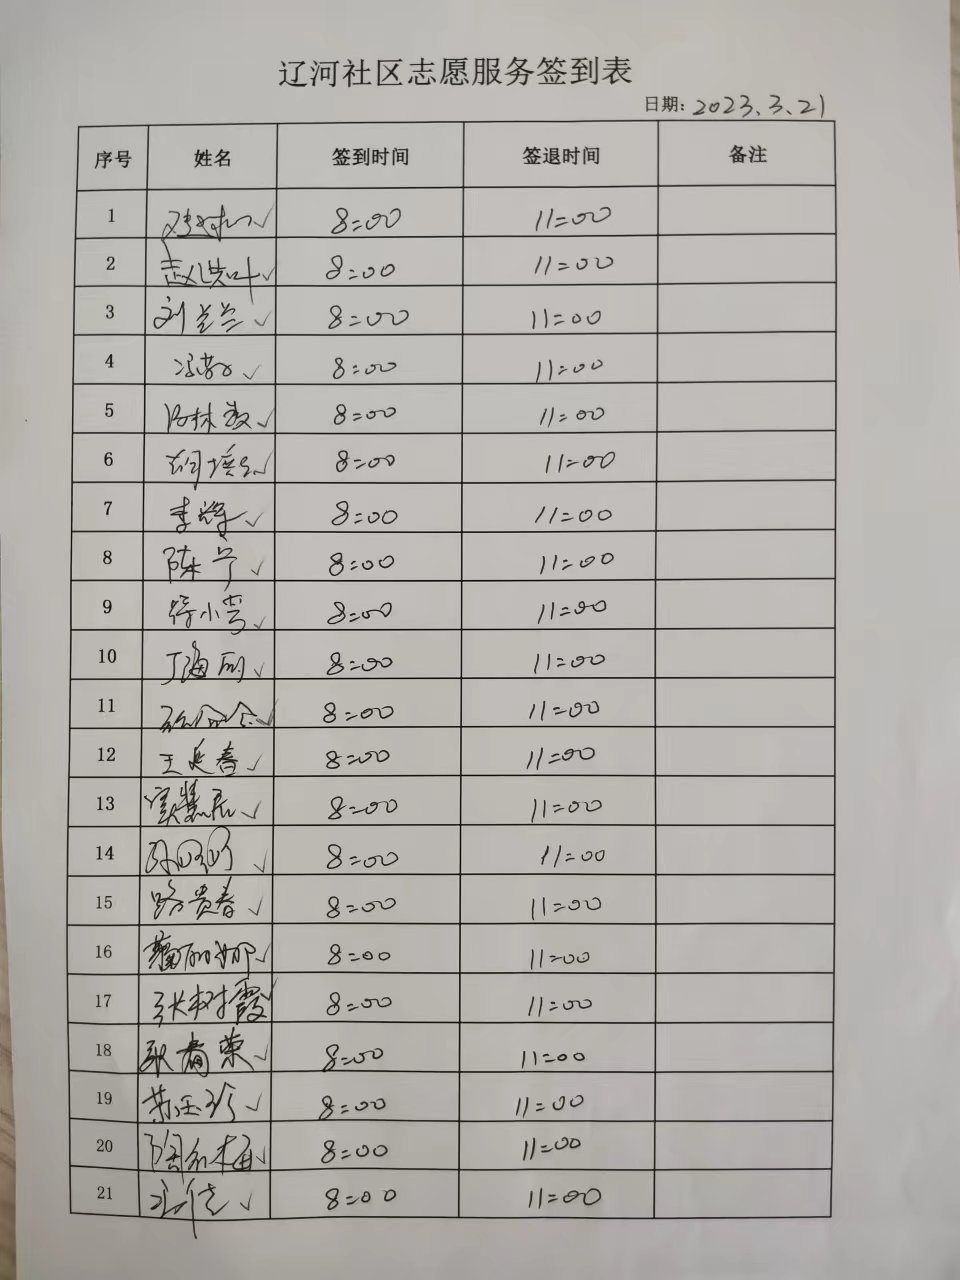 辽河社区志愿服务签到表
日期：2023.3.21
序号 姓名 签到时间 签退时间 备注
1 8=00 11=00
2 赵洪叶✓ 8=00 11=00
3 刘兰兰✓ 8=00 11=00
4 ✓ 8=00 11=00
5 ✓ 8=00 11=00
6 8=00 11=00
7 李辉✓ 8=00 11=00
8 陈宁✓ 8=00 11=00
9 徐小弯✓ 8=00 11=00
10 丁海丽✓ 8=00 11=00
11 8=00 11=00
12 王延春✓ 8=00 11=00
13 ✓ 8=00 11=00
14 ✓ 8=00 11=00
15 路贵春✓ 8=00 11=00
16 ✓ 8=00 11=00
17 张树霞✓ 8=00 11=00
18 耿春荣✓ 8=00 11=00
19 ✓ 8=00 11=00
20 ✓ 8=00 11=00
21 ✓ 8=00 11=00